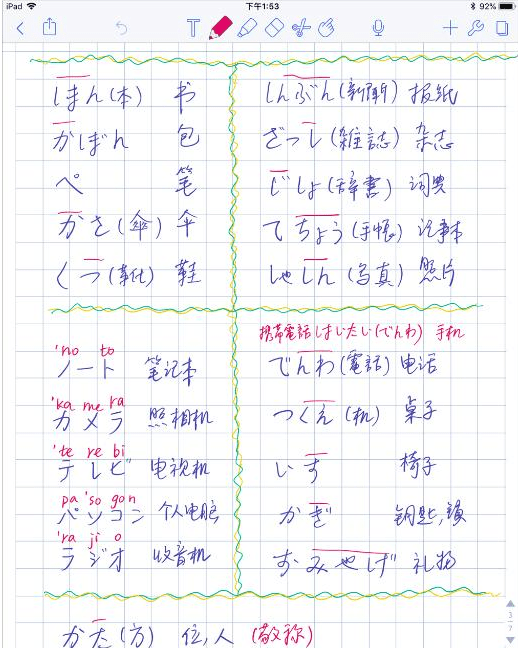 iPad 下午1:53 92%
ほん(本) 书
かばん 包
ペ 笔
かさ(傘) 伞
くつ(靴) 鞋
しんぶん(新聞) 报纸
ざっし(雑誌) 杂志
じしょ(辞書) 词典
てちょう(手帳) 记事本
しゃしん(写真) 照片
'no to
ノート 笔记本
'ka me ra
カメラ 照相机
'te re bi
テレビ 电视机
pa 'so gon
パソコン 个人电脑
'ra ji o
ラジオ 收音机
携帯電話 けいたい(でんわ) 手机
でんわ(電話) 电话
つくえ(机) 桌子
いす 椅子
かぎ 钥匙,锁
おみやげ 礼物
かた(方) 位,人 (敬称)
3/7